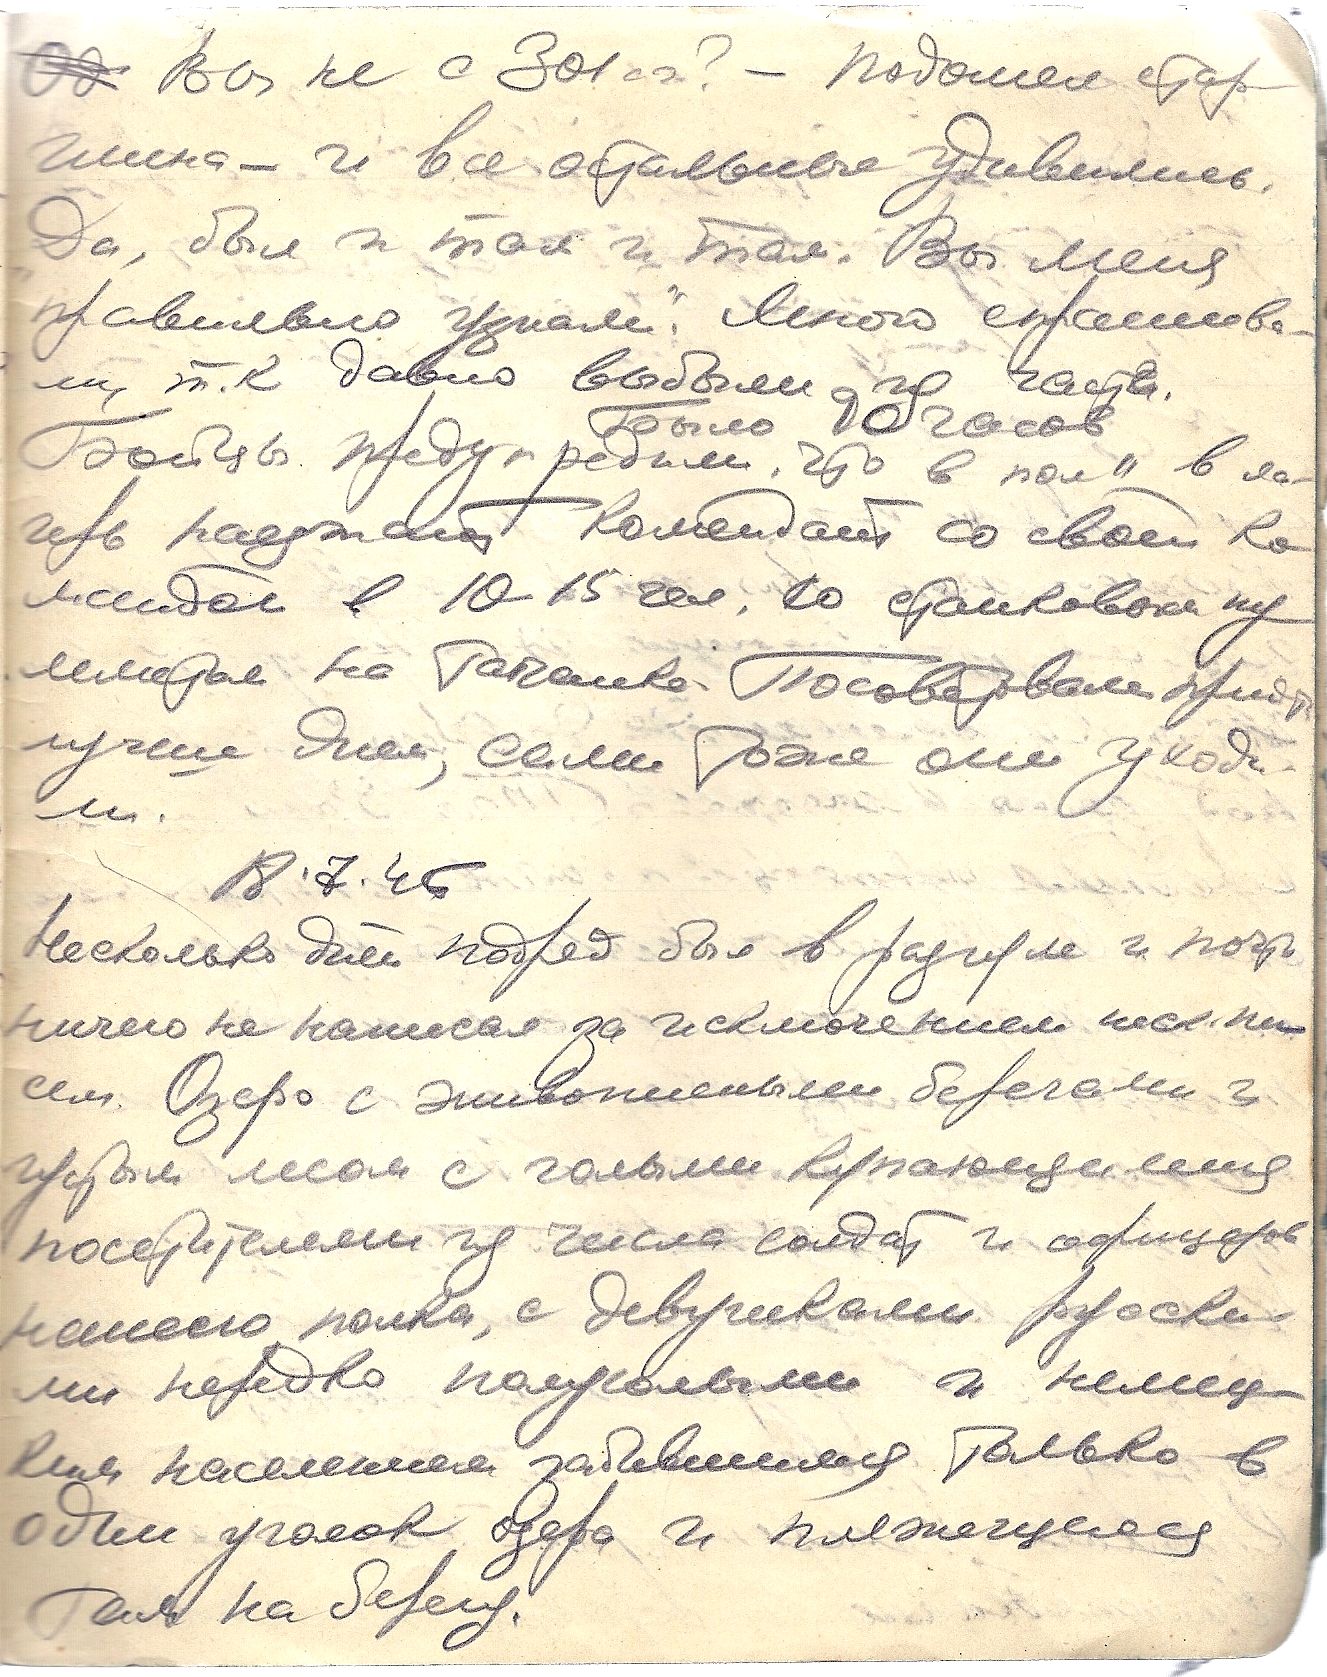 Вы не с 301 сд? – подошел стар
шина – и все остальные удивились.
Да, был и там и там. Вы меня
"правильно узнали". Много спрашива-
ли, т.к давно выбыли из части.
Было 20 часов
Бойцы предупредили, что в пол 11 в ла-
герь наезжает комендант со своей ко
мандой в 10-15 чел. со станковым пу
леметом на тачанке. Посоветовали придти
лучше днем, сами тоже они уходи-
ли.
18.7.45
Несколько дней подряд был в разгуле и почти
ничего не написал за исключением неск. пи-
сем. Озеро с живописными берегами и
густым лесом с голыми купающимися
посетителями из числа солдат и офицеров
нашего полка, с девушками русски-
ми нередко полуголыми и немец-
ким населением забившимся только в
один уголок озера и пляжущимся
там на берегу.